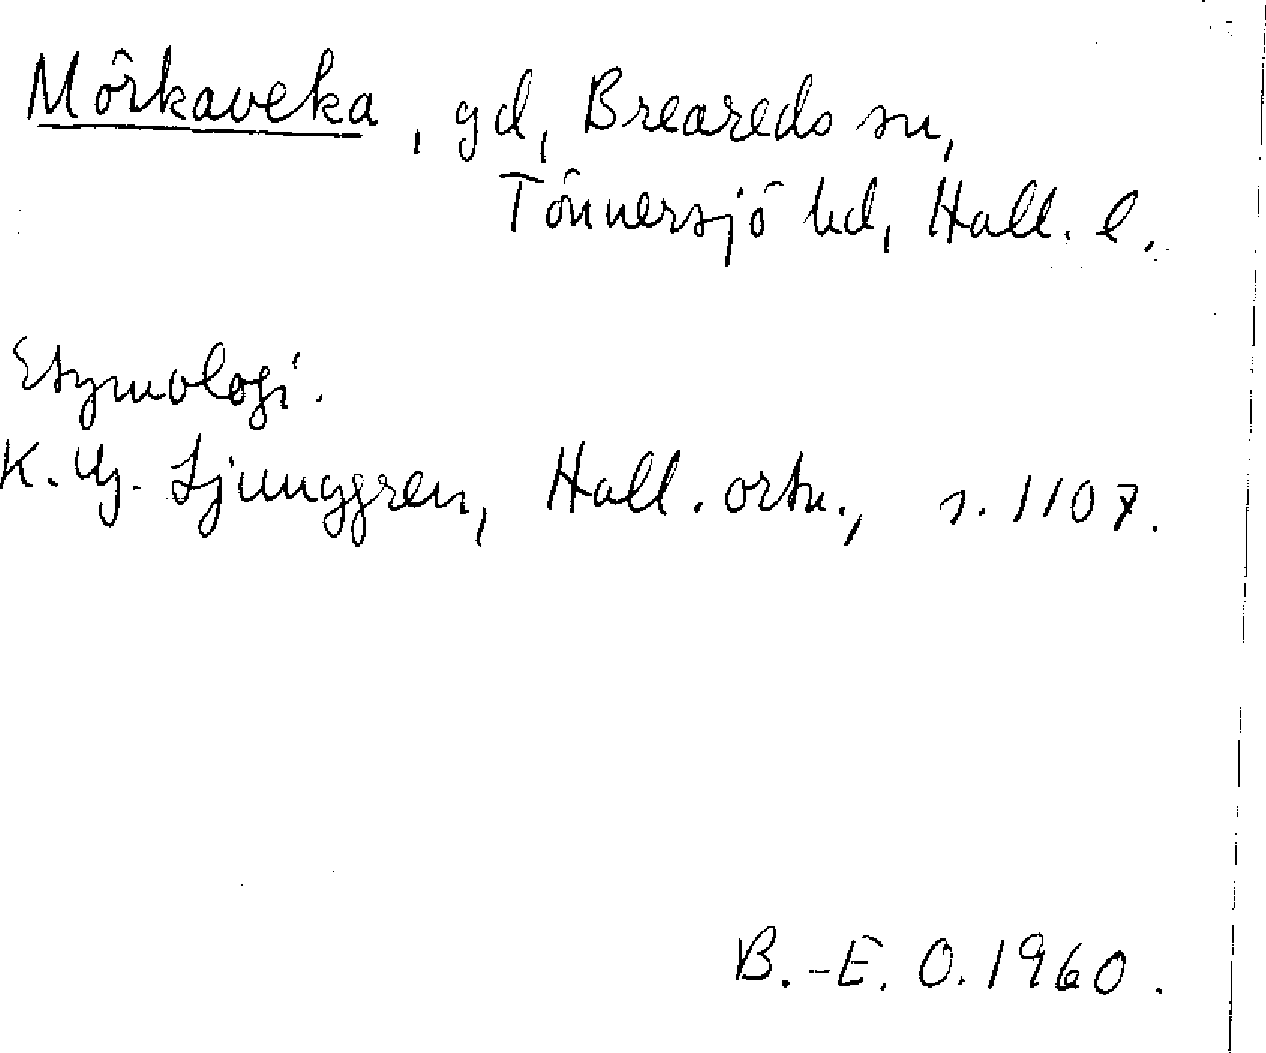 Mörkaveka, gd, Breareds sn,
Tönnersjö hd, Hall. l.
Etymologi.
K. G. Ljunggren, Hall. ortn., s. 1107.
B.-E. O. 1960.